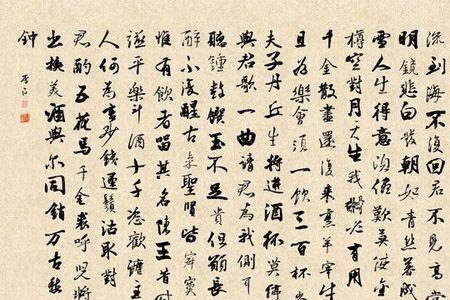 流到海不復回君不見高堂
明鏡悲白髮朝如青絲暮成
雪人生得意須盡歡莫使金
樽空對月天生我材必有用
千金散盡還復來烹羊宰牛
且為樂會須一飲三百杯岑
夫子丹丘生將進酒杯莫停
與君歌一曲請君為我側耳
聽鐘鼓饌玉不足貴但願長
醉不復醒古來聖賢皆寂寞
惟有飲者留其名陳王昔時
平樂斗酒十千恣歡謔主
人何為言少錢逕須沽取對
君酌五花馬千金裘呼兒將
出換美酒與尔同銷万古愁